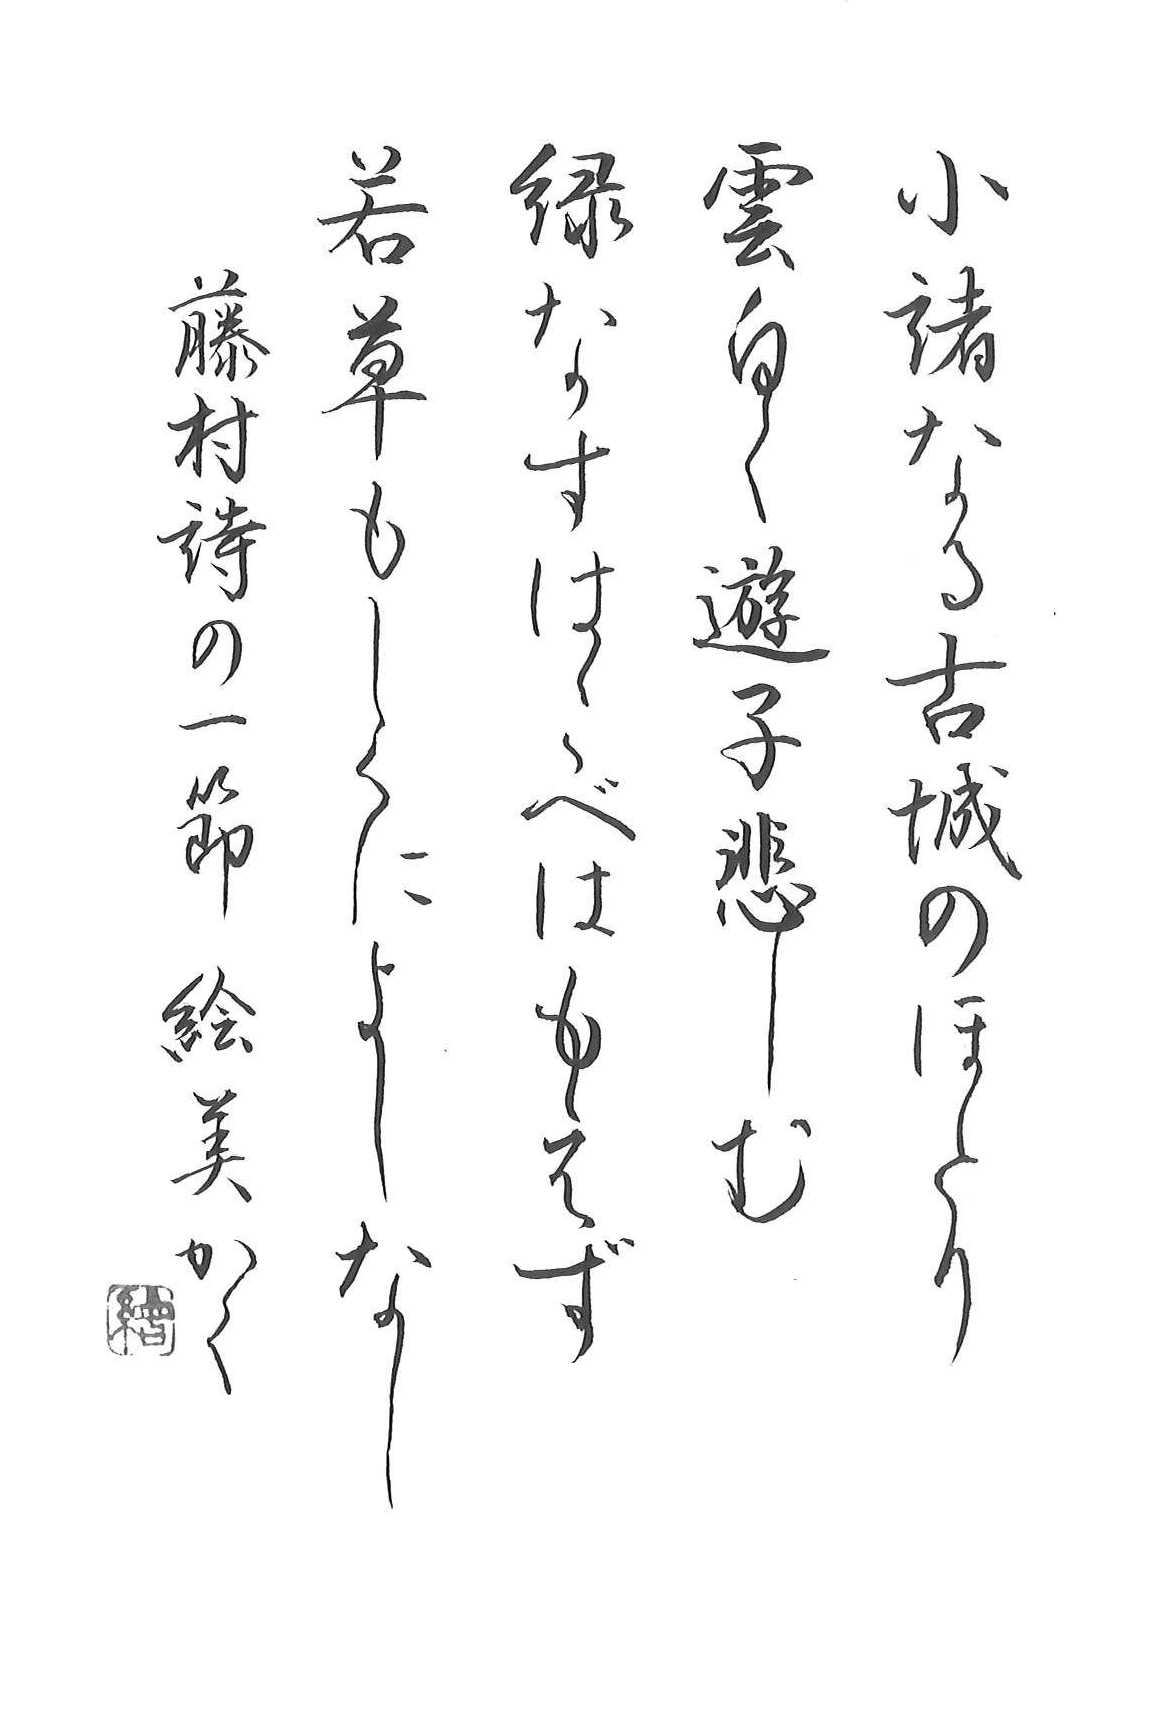 小諸なる古城のほとり
雲白く遊子悲しむ
緑なすはゝべはもえず
若草もしくによしなし
藤村詩の一節 絵美かく
繪